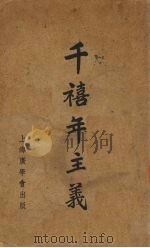 千禧年主義
上海廣學會出版